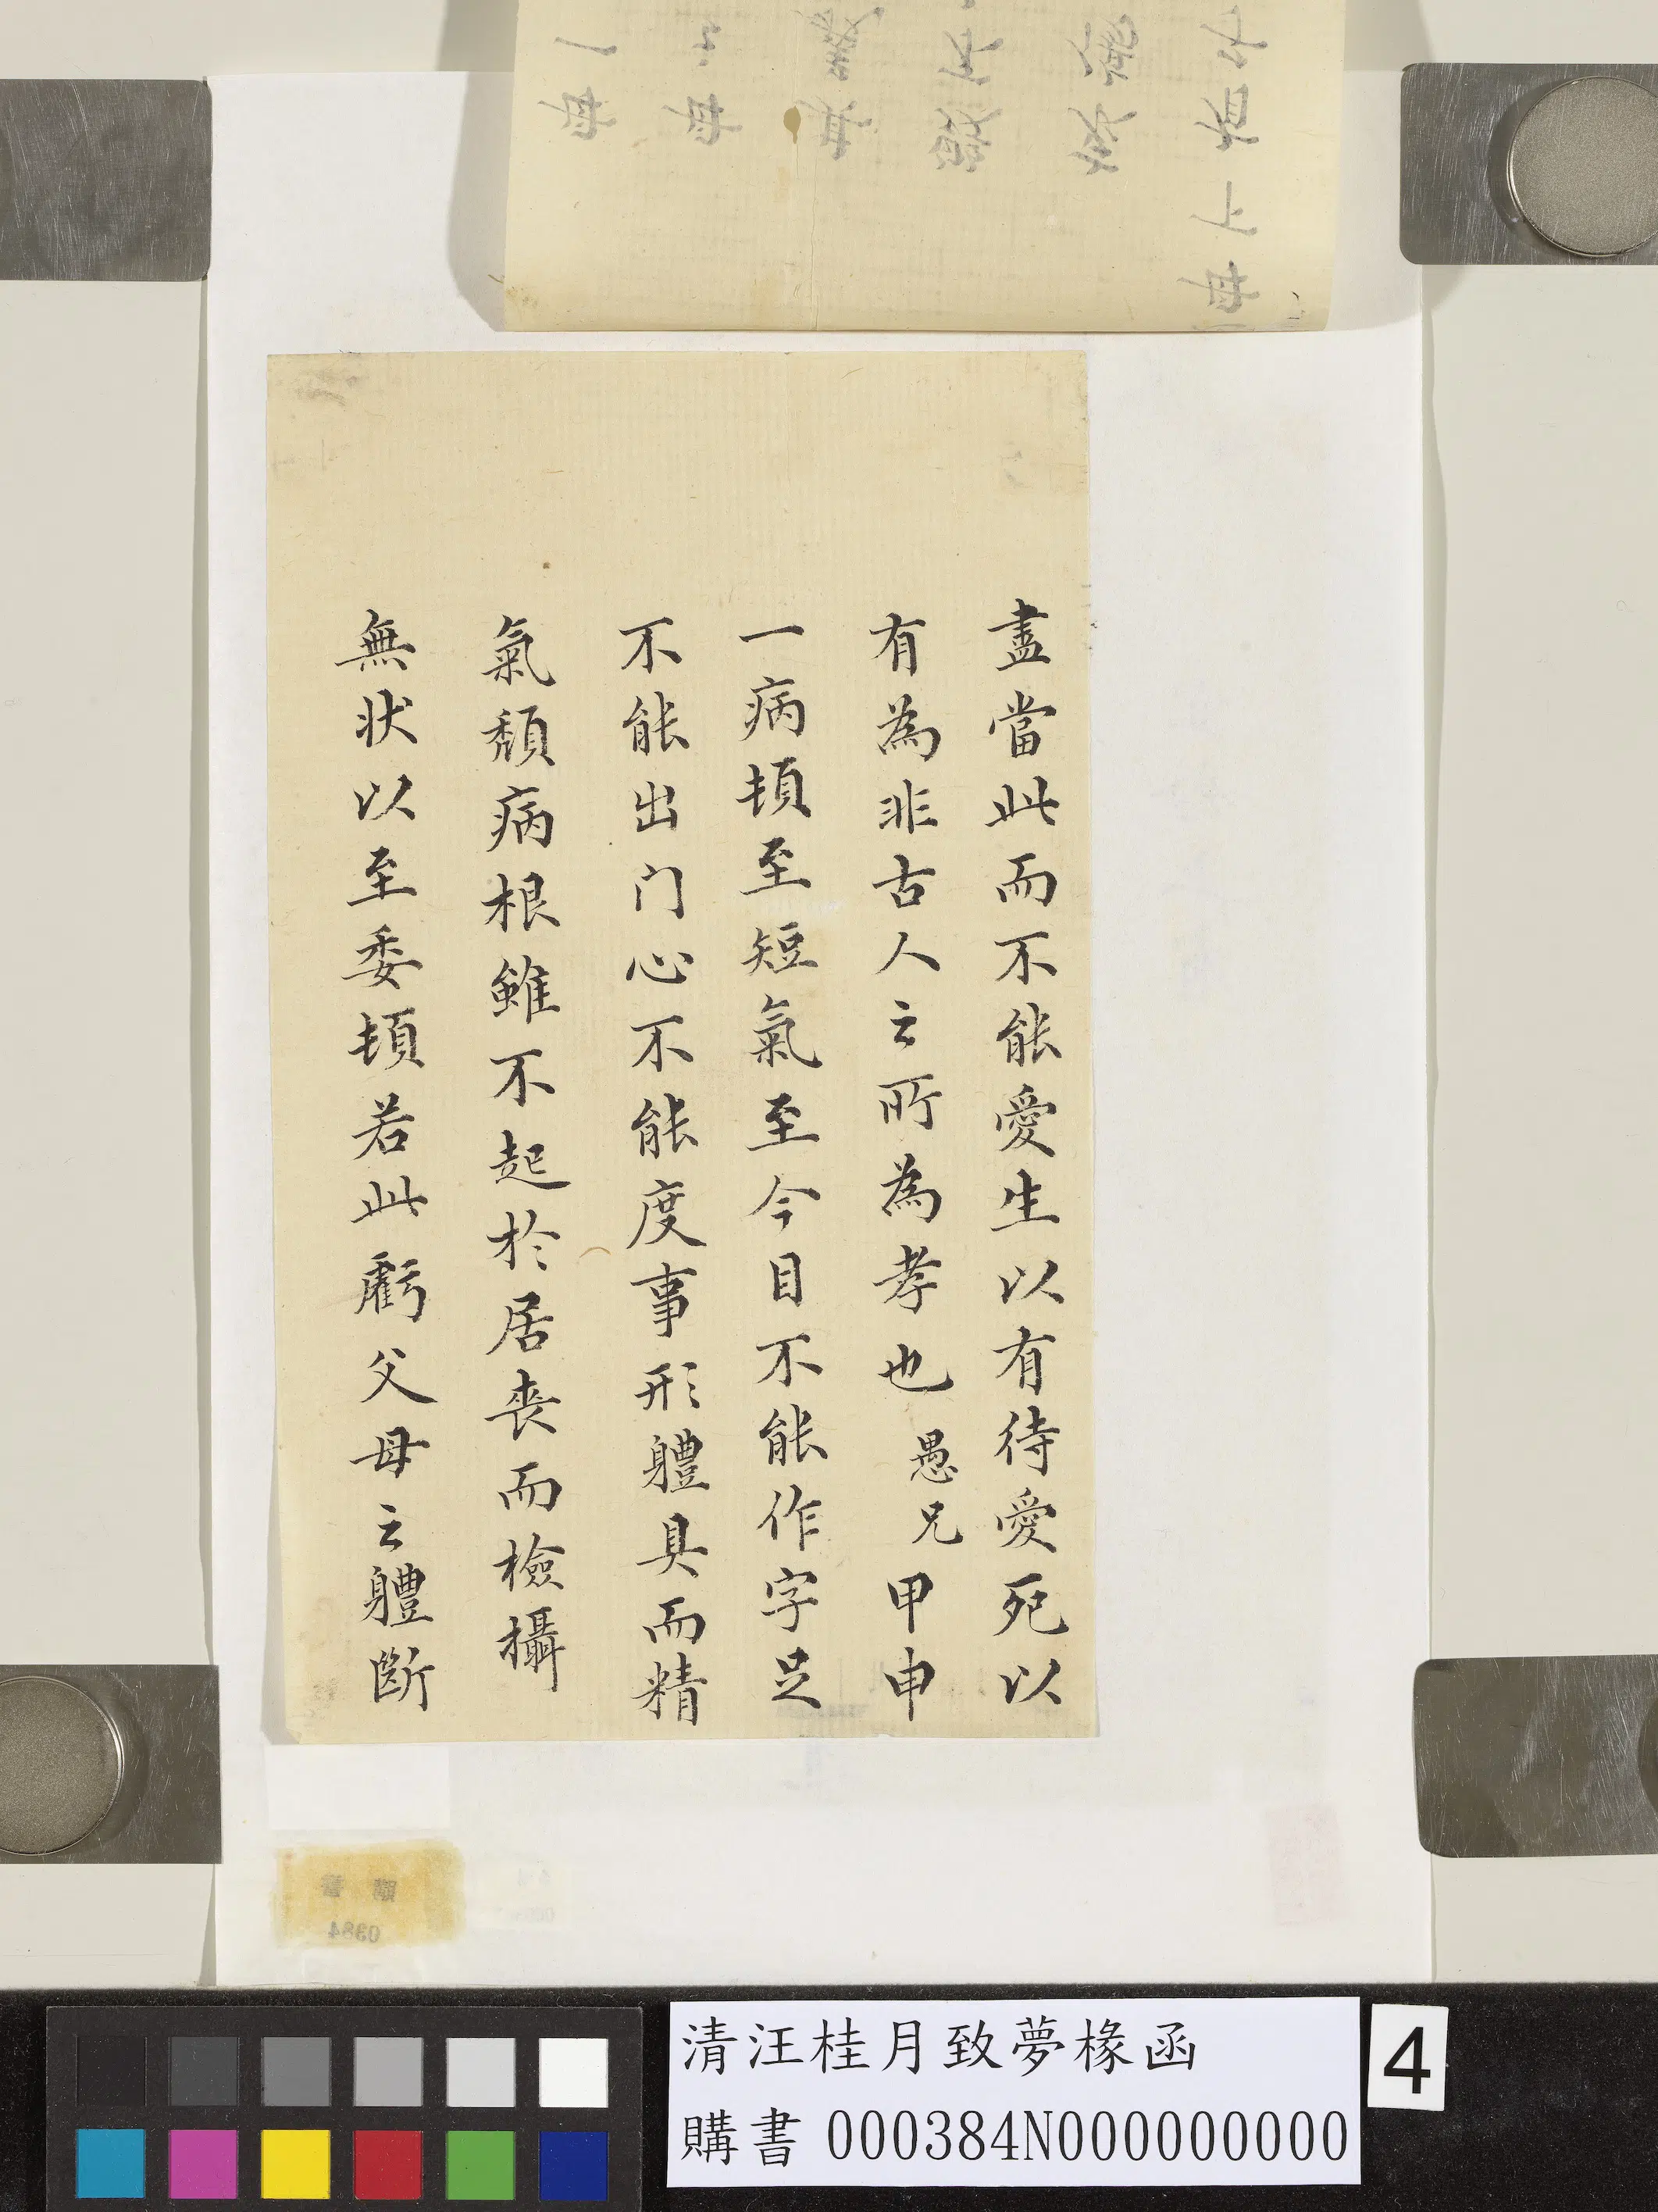 盡當此而不能愛生以有待愛死以
有為非古人之所為孝也愚兄甲申
一病頓至短氣至今目不能作字足
不能出门心不能度事形體具而精
氣頹病根雖不起於居喪而檢攝
無状以至委頓若此虧父母之體斷
清汪桂月致夢椽函
購書 000384N000000000
4
購書
0384